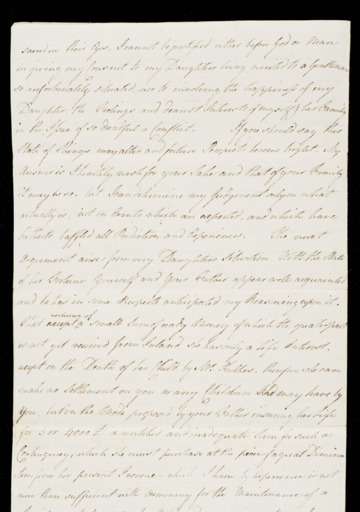 in their Eyes. I cannot be justified either before God or Man
in giving my Consent to my Daughters being united to a Gentleman
so unfortunately situated, as to involving the happiness of my
Daughter, the Feelings and dearest Interests of myself & of her Family
in the Issue of so dreadful a Conflict. If you should say this
State of Things may alter and future Prospects become bright. My
Answer is I heartily wish for your Sake and that of your Family
it may be so. but I can determine my Judgement only on what
actually is, not on Events which are expected, and which have
hitherto baffled all Prediction and Experience. The next
Argument arises from my Daughters Situation. With the State
of her Fortune yourself and your Father appear well acquainted
and he has in some Respects anticipated my Reasoning upon it.
That exclusive of a small Sum of ready Money of which the greatest part
is not yet received from Ireland she has only a Life Interest.
except on the Death of her Child by Mr. Tolles. therefore she can
make no Settlement on you or any Children she may have by
You. but on the Terms proposed by your Father insuring her Life
for 3 or 4000£ a limited and inadequate Sum for such a
Contingency, which she must purchase at the price of a great Diminution
from her present Income - which I know by experience is not
more than sufficient with Oeconomy for the Maintenance of a